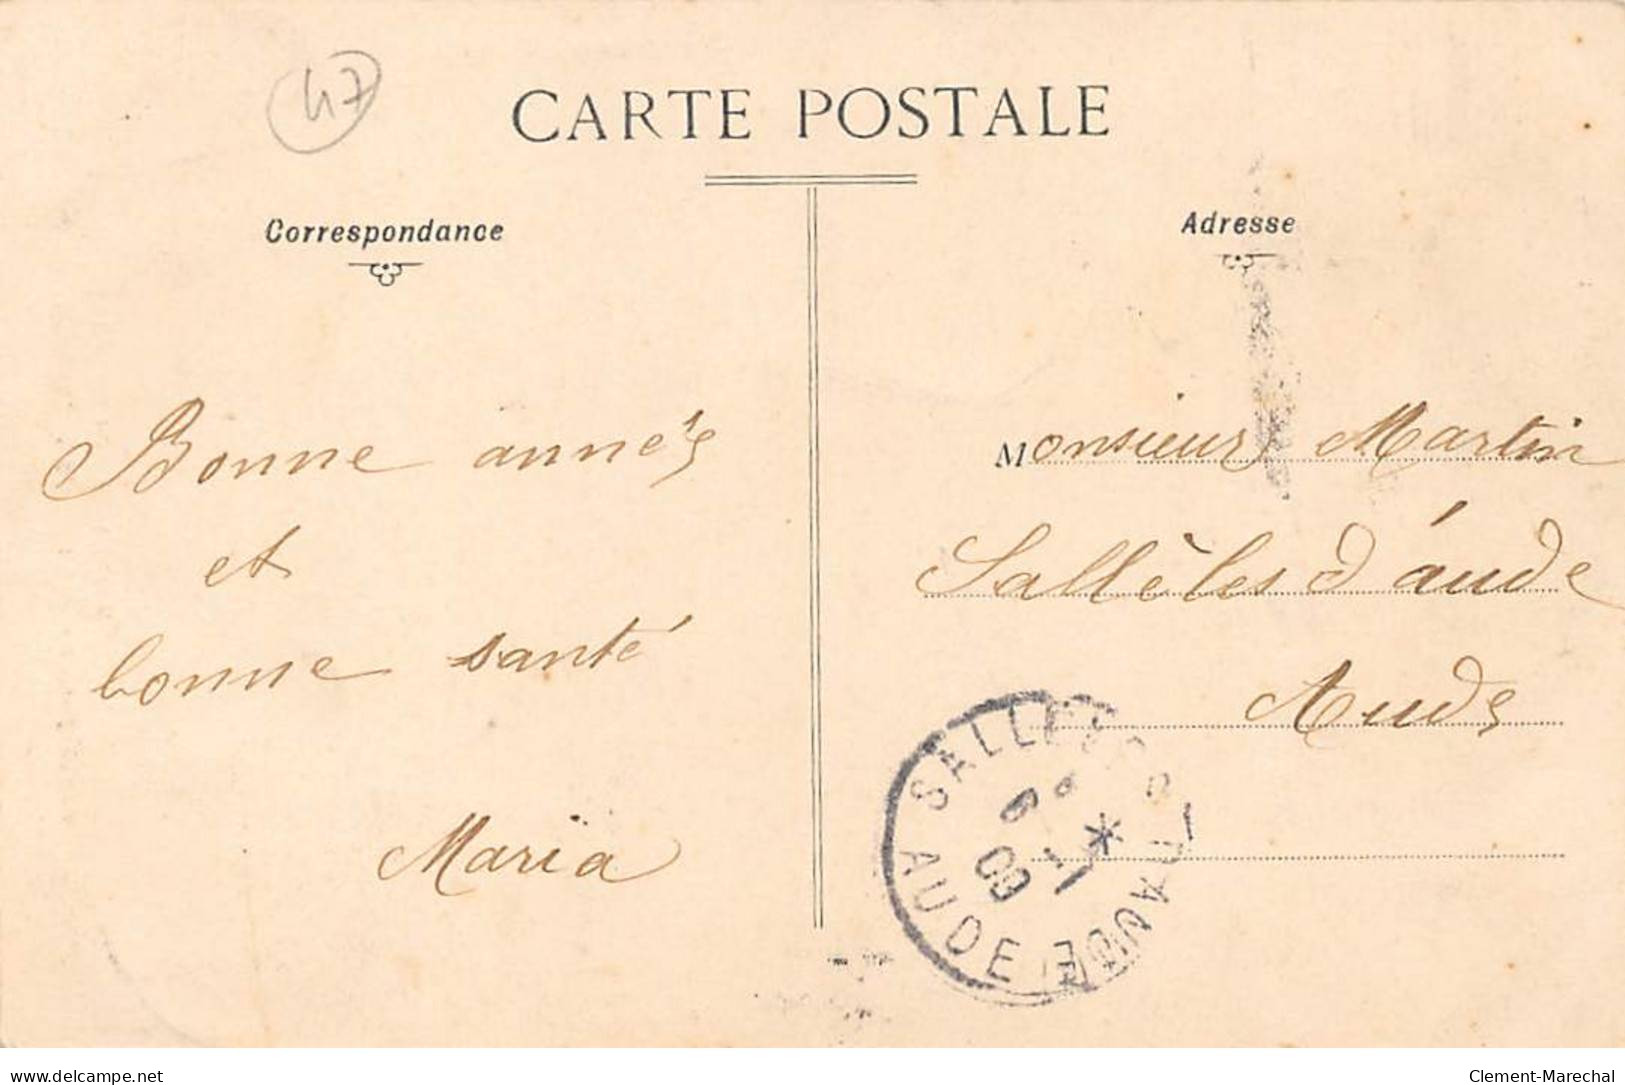 47
CARTE POSTALE
Correspondance
Adresse
Bonne année
et
bonne santé
Maria
Monsieur Martin
Sallèles d'aude
Aude
SALLELES-D'AUDE
AUDE
delcampe.net
Clement-Marechal